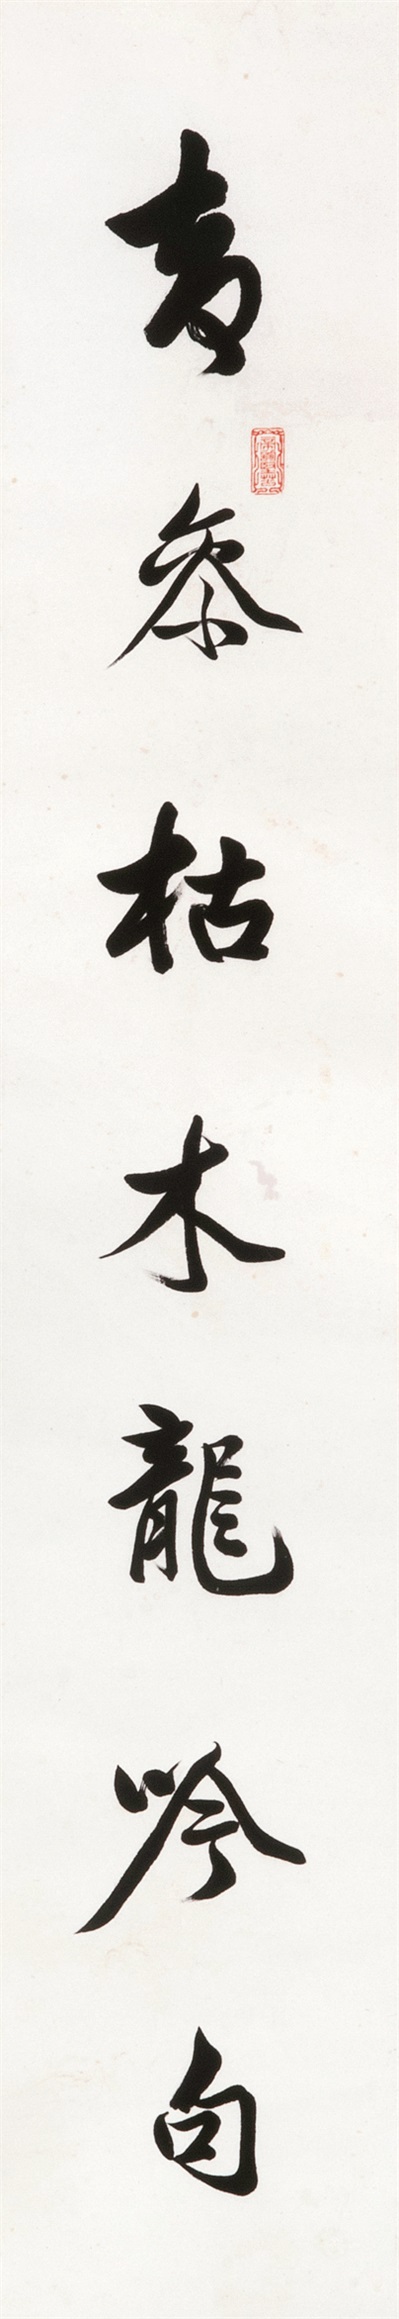 參枯木龍吟句